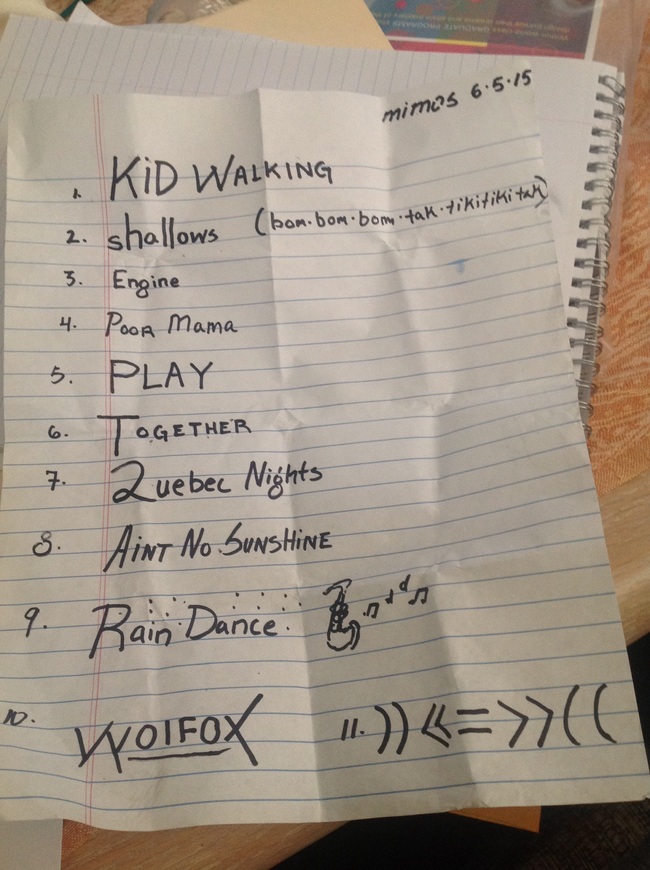 mimos 6.5.15
1. KiD WALKING
2. shallows (bom.bom.bom.tak.tikitikitak)
3. Engine
4. POOR Mama
5. PLAY
6. TOGETHER
7. Quebec Nights
8. AiNT No SUNSHiNE
9. Rain Dance
10. WOlFOX 11. )) << = >> ((